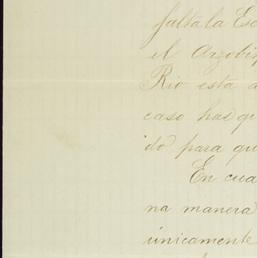 falta la Es
el Arzobis
Rio esta a
caso has qu
ido para qu
En cua
na manera
únicamente